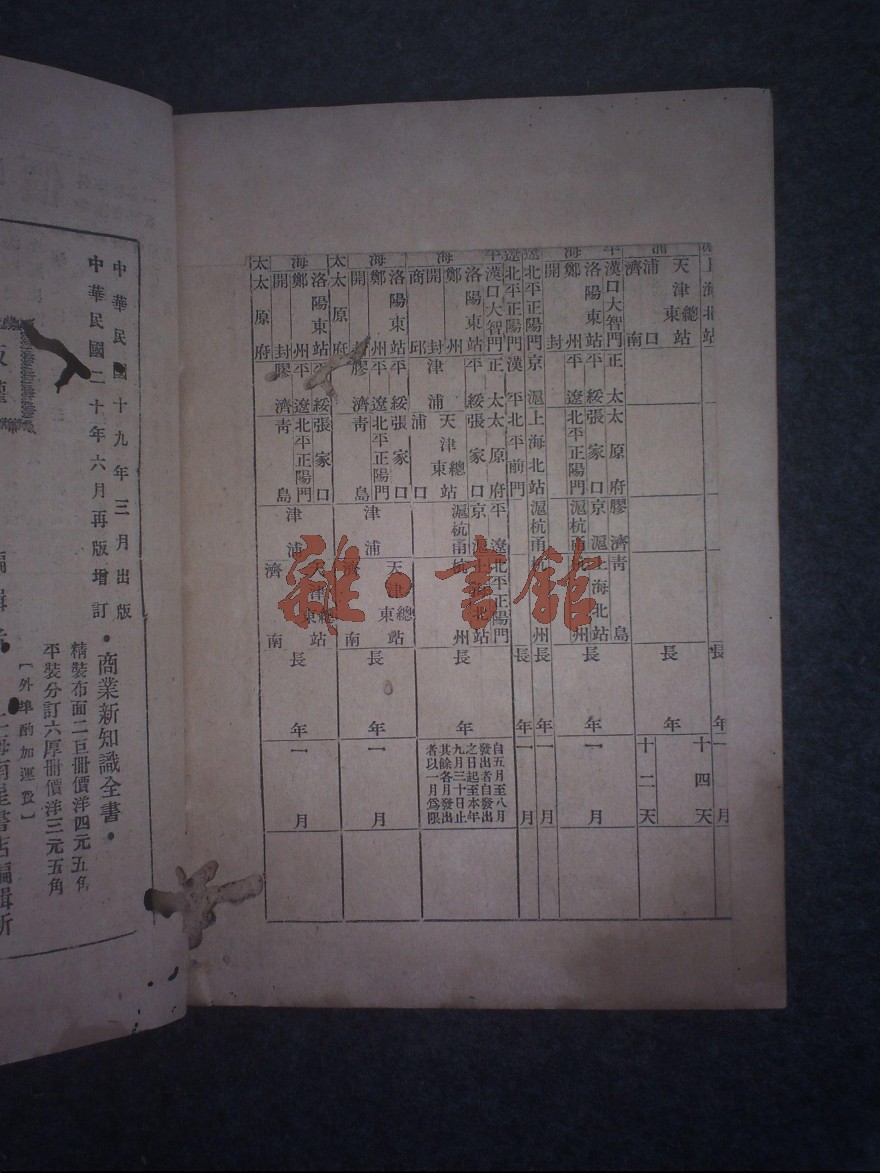 上海北站
長年
一月
浦
天津東總站
浦口
濟南
長年
十四天
十二天
平漢口大智門 正太 太原府 膠濟 青島
洛陽東站 平綏 張家口 京滬 上海北站
海鄭州 平遼 北平正陽門 滬杭甬 杭州
開封
長年
一月
遼北平正陽門 京滬 上海北站 滬杭甬 杭州 長年 一月
遼北平正陽門 漢平 北平前門 長年 一月
平漢口大智門 正太 太原府 平遼 北平正陽門
洛陽東站 平綏 張家口 京滬 上海北站
海鄭州 津浦 天津東總站 滬杭甬 杭州
開封 浦口
商邱
長年
自五月至八月
發出者自發出
之日起至本年
九月三十日止
其餘各月發出
者以一月爲限
洛陽東站 平綏 張家口 津浦 天津東總站
海鄭州 平遼 北平正陽門
開封 膠濟 青島 濟南
長年
一月
太太原府
洛陽東站 平綏 張家口 津浦 天津東總站
海鄭州 平遼 北平正陽門
開封 膠濟 青島 濟南
長年
一月
太太原府
雜·書館
中華民國十九年三月出版
中華民國二十年六月再版增訂
·商業新知識全書·
精裝布面二巨冊價洋四元五角
平裝分訂六厚冊價洋三元五角
［外埠酌加運費］